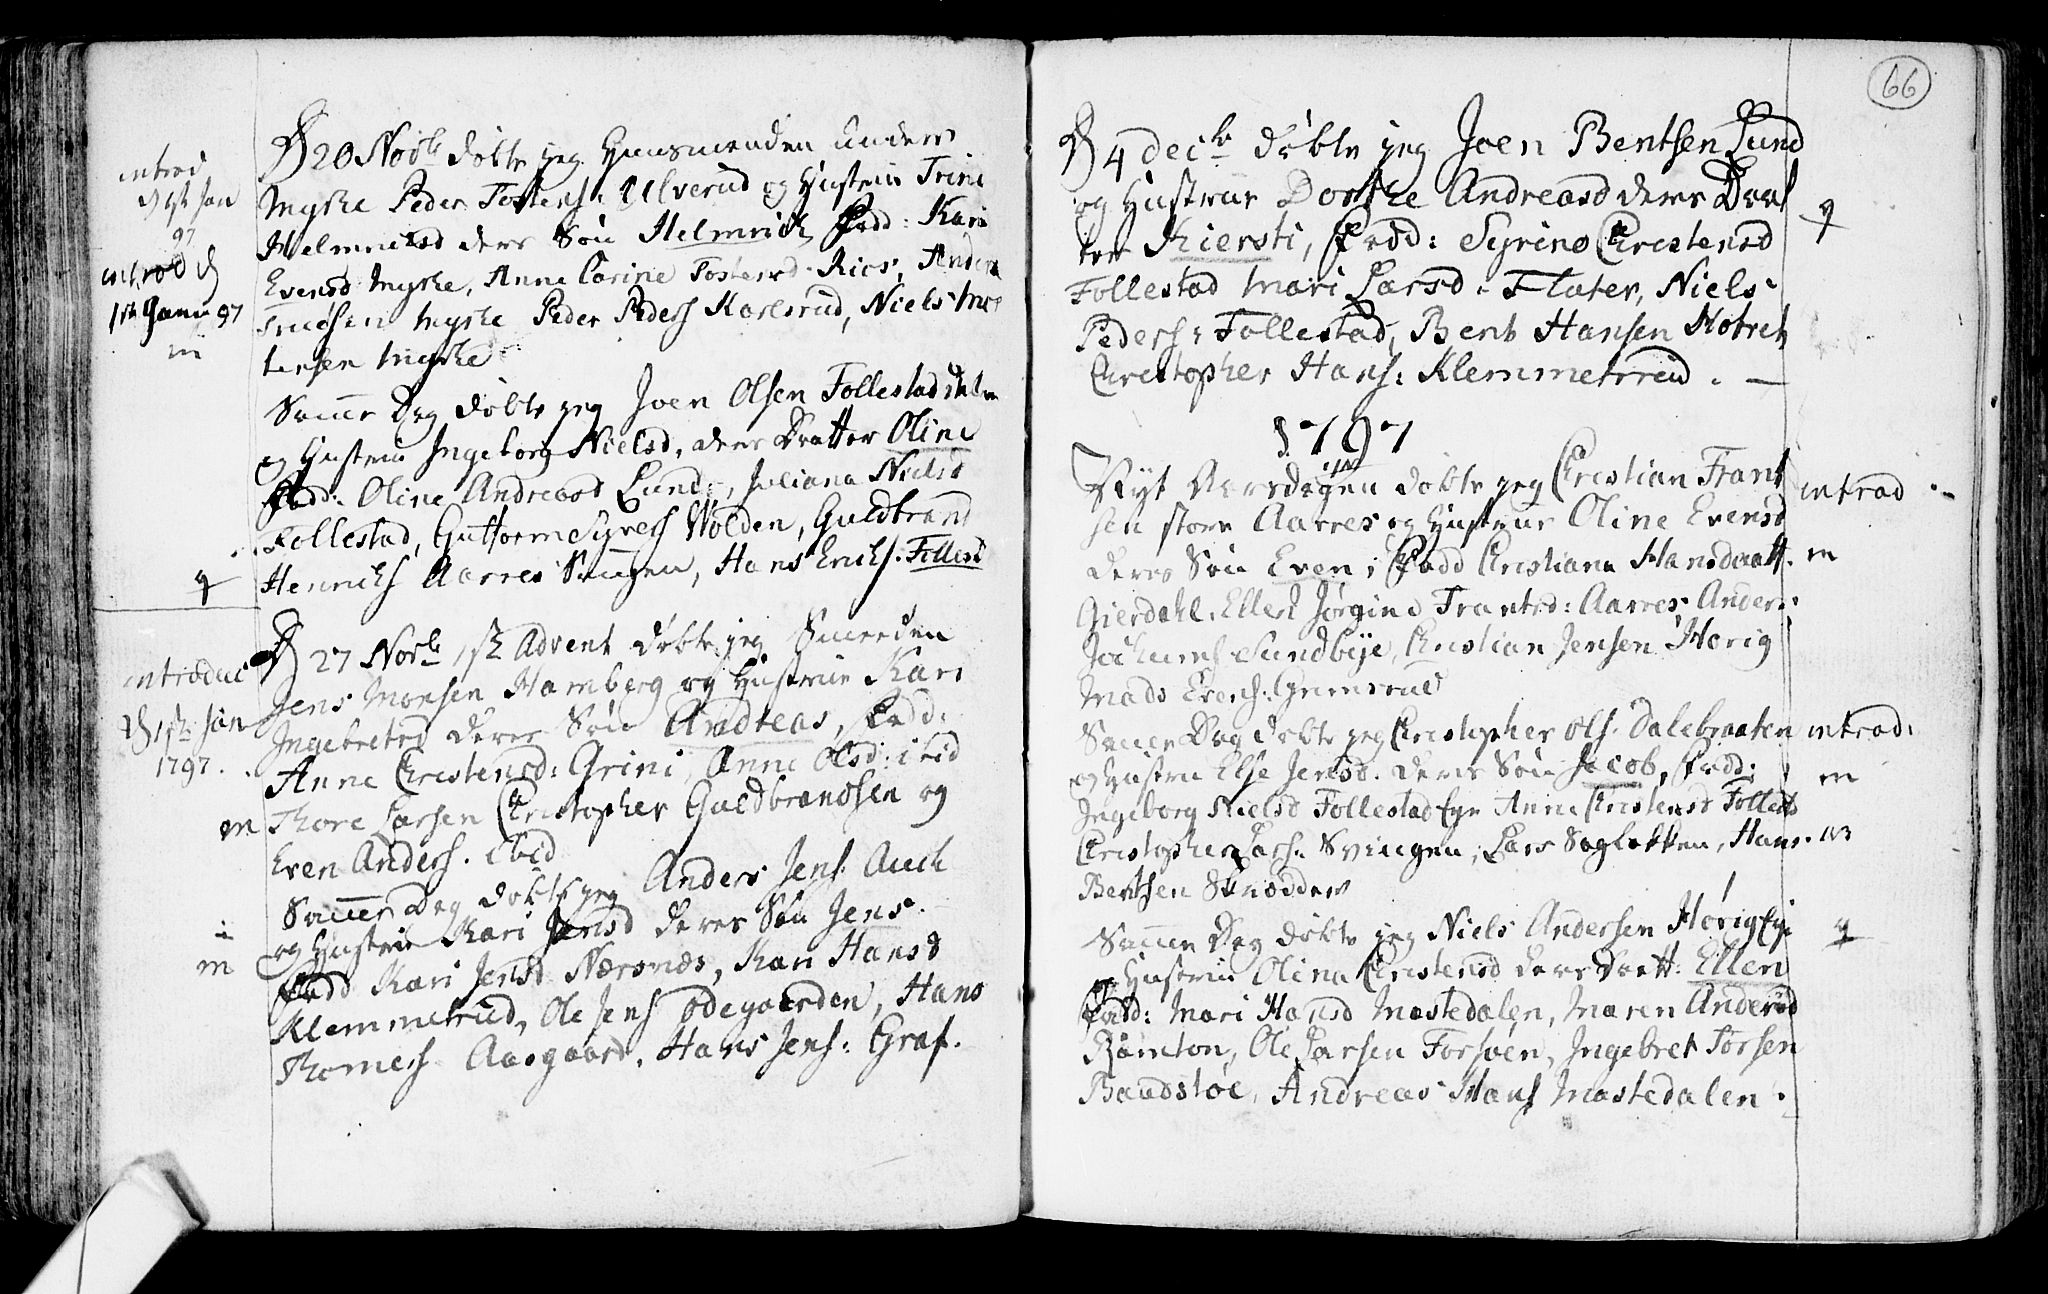 introd
d 1st Jan
97
introd d
1st Janu 97
m
D 20 Novbr døbte jeg Huusmanden under
Myhre Peder Tostens: Ulverud og Hustrue Trine
Helmriksd deres Søn Helmrich Fadd: Kari
Evensd Myhre, Anne Carine Tostensd Kios, Anders
Truösen Myhre Peder Peders Karlsrud, Niels Mor
tensen Myhre
Samme Dag døbte jeg Joen Olsen Follestad
og Hustrue Ingeborg Nielsd, deres Daatter Oline
Fadd: Oline Andreasd Lund, Juliana Nielsd
Follestad, Guttorm Syvers Wolden, Guldbrand
Henrichs Aarres Svingen, Hans Erichs. Follest
q
D 27 Novbr 1st Advent døbte jeg Smeeden
Jens Monsen Hamberg og Hustrue Kari
Ingebretsd deres Søn Andreas, Fadd:
Anne Christensd: Grini, Anne Olsd: ibid
Thore Larsen Christopher Guldbrandsen og
Even Anders. ibid
introduc
d 1st Jan
1797.
m
Samme Dag døbte jeg Anders Jens. Auch
og Hustrue Kari Jensd deres Søn Jens.
Fadd Kari Jensd Nærsnæs, Kari Hansd
Klemmetrud, Ole Jens Ødegaarden, Hans
Thomess Aasgaard, Hans Jens: Graf.
m
66
D 4 Decbr døbte jeg Joen Bentsen Lund
og Hustrue Dorthe Andreasd deres Daat
ter Kiersti, Fadd: Syrine Christensd
Follestad Mari Larsd: Flater, Niels
Peders: Follestad, Bent Hansen Hotvet
Christopher Hans: Klemmetrud. —
q
1797
Nyt Aarsdagen døbte jeg Christian Frant
sen store Aarres og Hustrue Oline Evensd
deres Søn Even, Fadd Christiana Hansdaatt.
Gierdahl, Ellen Jørgine Frantsd: Aarres Anders
Jochums Sundbye, Christian Jensen Hørig
Mads Evens: Grimsrud
introd
m
Samme Dag døbte jeg Christopher Ols. Dalebraaten
og Hustrue Else Jensd. deres Søn Jacob, Fadd:
Ingeborg Nielsd Follestad Eye Anne Christensd Follest
Christopher Lars. Svingen, Lars Sogløkken, Hans
Bentsen Skrædder
introd:
m
Samme Dag døbte jeg Niels Andersen Hørig Eye
og Hustrue Olina Christensd deres Daatt: Ellen
Fadd: Mari Hansd Mastedalen, Maren Andersd
Ramton, Ole Larsen Forsøen, Ingebret Torsen
Baadstøe, Andreas Hans Mastedalen.
q